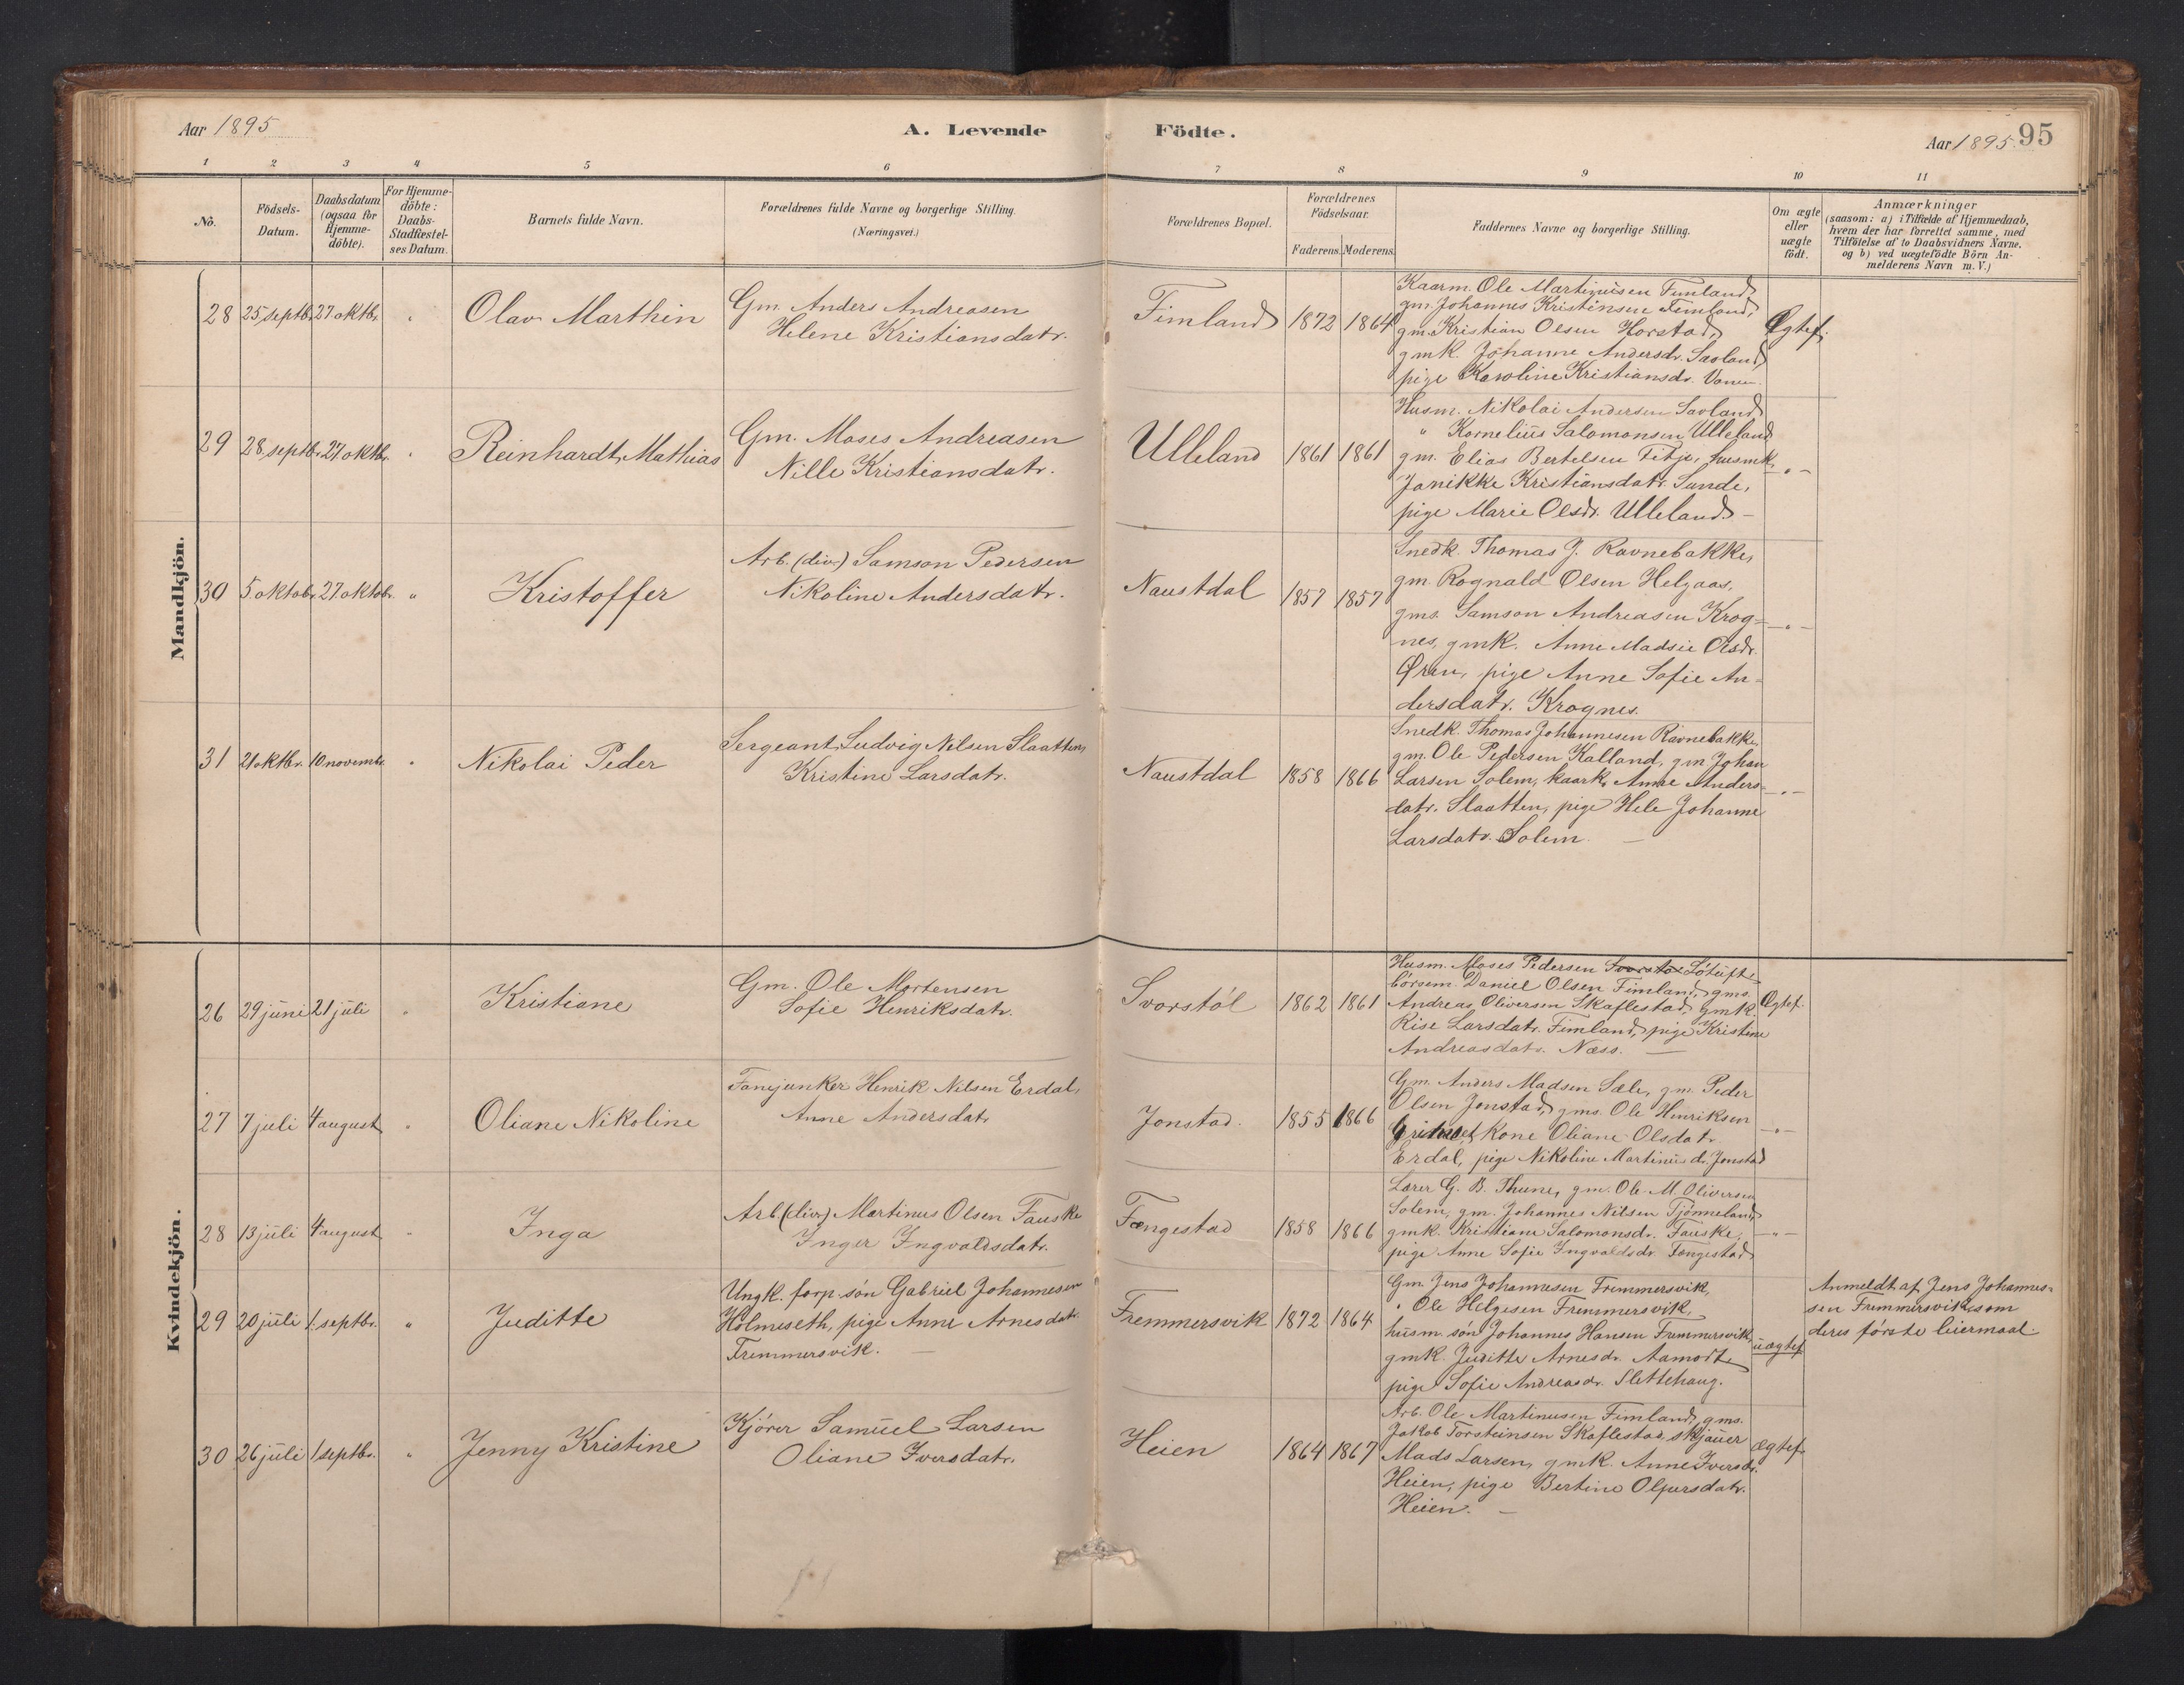 Aar 1895
A. Levende Födte.
Aar 1895 95
1 2 3 4 5 6 7 8 9 10 11
No.
Födsels-Datum.
Daabsdatum (ogsaa for Hjemme-döbte).
For Hjemme-döbte: Daabs-Stadfæstel-ses Datum.
Barnets fulde Navn.
Forældrenes fulde Navne og borgerlige Stilling.
(Næringsvei.)
Forældrenes Bopæl.
Forældrenes Födselsaar.
Faderens. Moderens.
Faddernes Navne og borgerlige Stilling.
Om ægte eller uægte födt.
Anmærkninger
(saasom: a) i Tilfælde af Hjemmedaab,
hvem der har forrettet samme, med
Tilföielse af to Daabsvidners Navne.
og b) ved uægtefödte Börn An-
melderens Navn m. V.)
Mandkjön.
28 25 septb. 27 oktb. " Olav Marthin
Gm. Anders Andreasen
Helene Kristiansdatr.
Fimland 1872 1864
Kaarm. Ole Martinusen Fimland,
gm. Johannes Kristensen Fimland,
gm. Kristian Olsen Horstad,
gmk. Johanne Andersdr. Savland,
pige Karoline Kristiansdr. Vonen.
Ægtef.
29 28 septb. 27 oktb. " Reinhardt Mathias
Gm. Moses Andreasen
Nille Kristiansdatr.
Ulleland 1861 1861
Husm. Nikolai Andersen Savland
" Kornelius Salomonsen Ulleland
gm. Elias Bertelsen Fitje, husmk.
Janikke Kristiansdatr. Sunde,
pige Marie Olsdr. Ulleland. –
– " –
30 5 oktob. 27 oktob. " Kristoffer
Arb. (div.) Samson Pedersen
Nikoline Andersdatr.
Naustdal 1857 1857
Snedk. Thomas J. Ravnebakke,
gm. Rognald Olsen Helgaas,
gms. Samson Andreasen Krog=
nes, gmk. Anne Madsie Olsdr.
Øren, pige Anne Sofie An=
dersdatr. Krognes.
– " –
31 21 oktbr. 10 novembr. " Nikolai Peder
Sergeant Ludvig Nilsen Slaatten,
Kristine Larsdatr.
Naustdal 1858 1866
Snedk. Thomas Johannesen Ravnebakke
gm. Ole Pedersen Kalland, gm Johan
Larsen Solem, kaark. Anne Anders=
datr. Slaatten, pige Hele Johanne
Larsdatr. Solem. –
– " –
Kvindekjön.
26 29 juni 21 juli " Kristiane
Gm. Ole Mortensen
Sofie Henriksdatr.
Svorstöl 1862 1861
Husm. Moses Pedersen Svorstöl Lötuft,
börsem. Daniel Olsen Fimland, gms.
Andreas Oliversen Skaflestad, gmk.
Rise Larsdatr. Fimland, pige Kristine
Andreasdatr. Næss. –
Ægtef.
27 7 juli 4 august " Oliane Nikoline
Fanejunker Henrik Nilsen Erdal,
Anne Andersdatr
Jonstad. 1855 1866
Gm. Anders Madsen Sæle, gm. Peder
Olsen Jonstad, gms. Ole Henriksen
Kone Oliane Olsdatr.
Erdal, pige Nikoline Martinusdr. Jonstad
– " –
28 13 juli 4 august " Inga
Arb (div.) Martinus Olsen Fauske
Inger Ingvaldsdatr.
Fængestad 1858 1866
Lærer G. B. Thune, gm. Ole M. Oliversen
Solem, gm. Johannes Nilsen Tjönneland,
gmk. Kristiane Salomonsdr. Fauske,
pige Anne Sofie Ingvaldsdr. Fængestad
– " –
29 20 juli 1. septbr. " Juditte
Ungk. forp. sön Gabriel Johannesen
Holmeseth, pige Anne Arnesdatr.
Fremmersvik. –
Fremmersvik 1872 1864
Gm. Jens Johannesen Fremmersvik,
" Ole Helgesen Fremmersvik,
husm. sön Johannes Hansen Fremmersvik,
gmk. Juditte Arnesdr. Aamodt,
pige Sofie Andreasdr. Slettehaug.
uægtef
Anmeldt af Jens Johannes=
sen Fremmersvik som
deres förste leiermaal.
30 26 juli 1 septbr. " Jenny Kristine
Kjörer Samuel Larsen
Oliane Iversdatr.
Heien 1864 1867
Arb. Ole Martinusen Fimland, gms.
Jakob Torsteinsen Skaflestad, skjauer
Mads Larsen, gmk. Anne Iversdr.
Heien, pige Bertine Olpersdatr.
Heien. –
Ægtef.